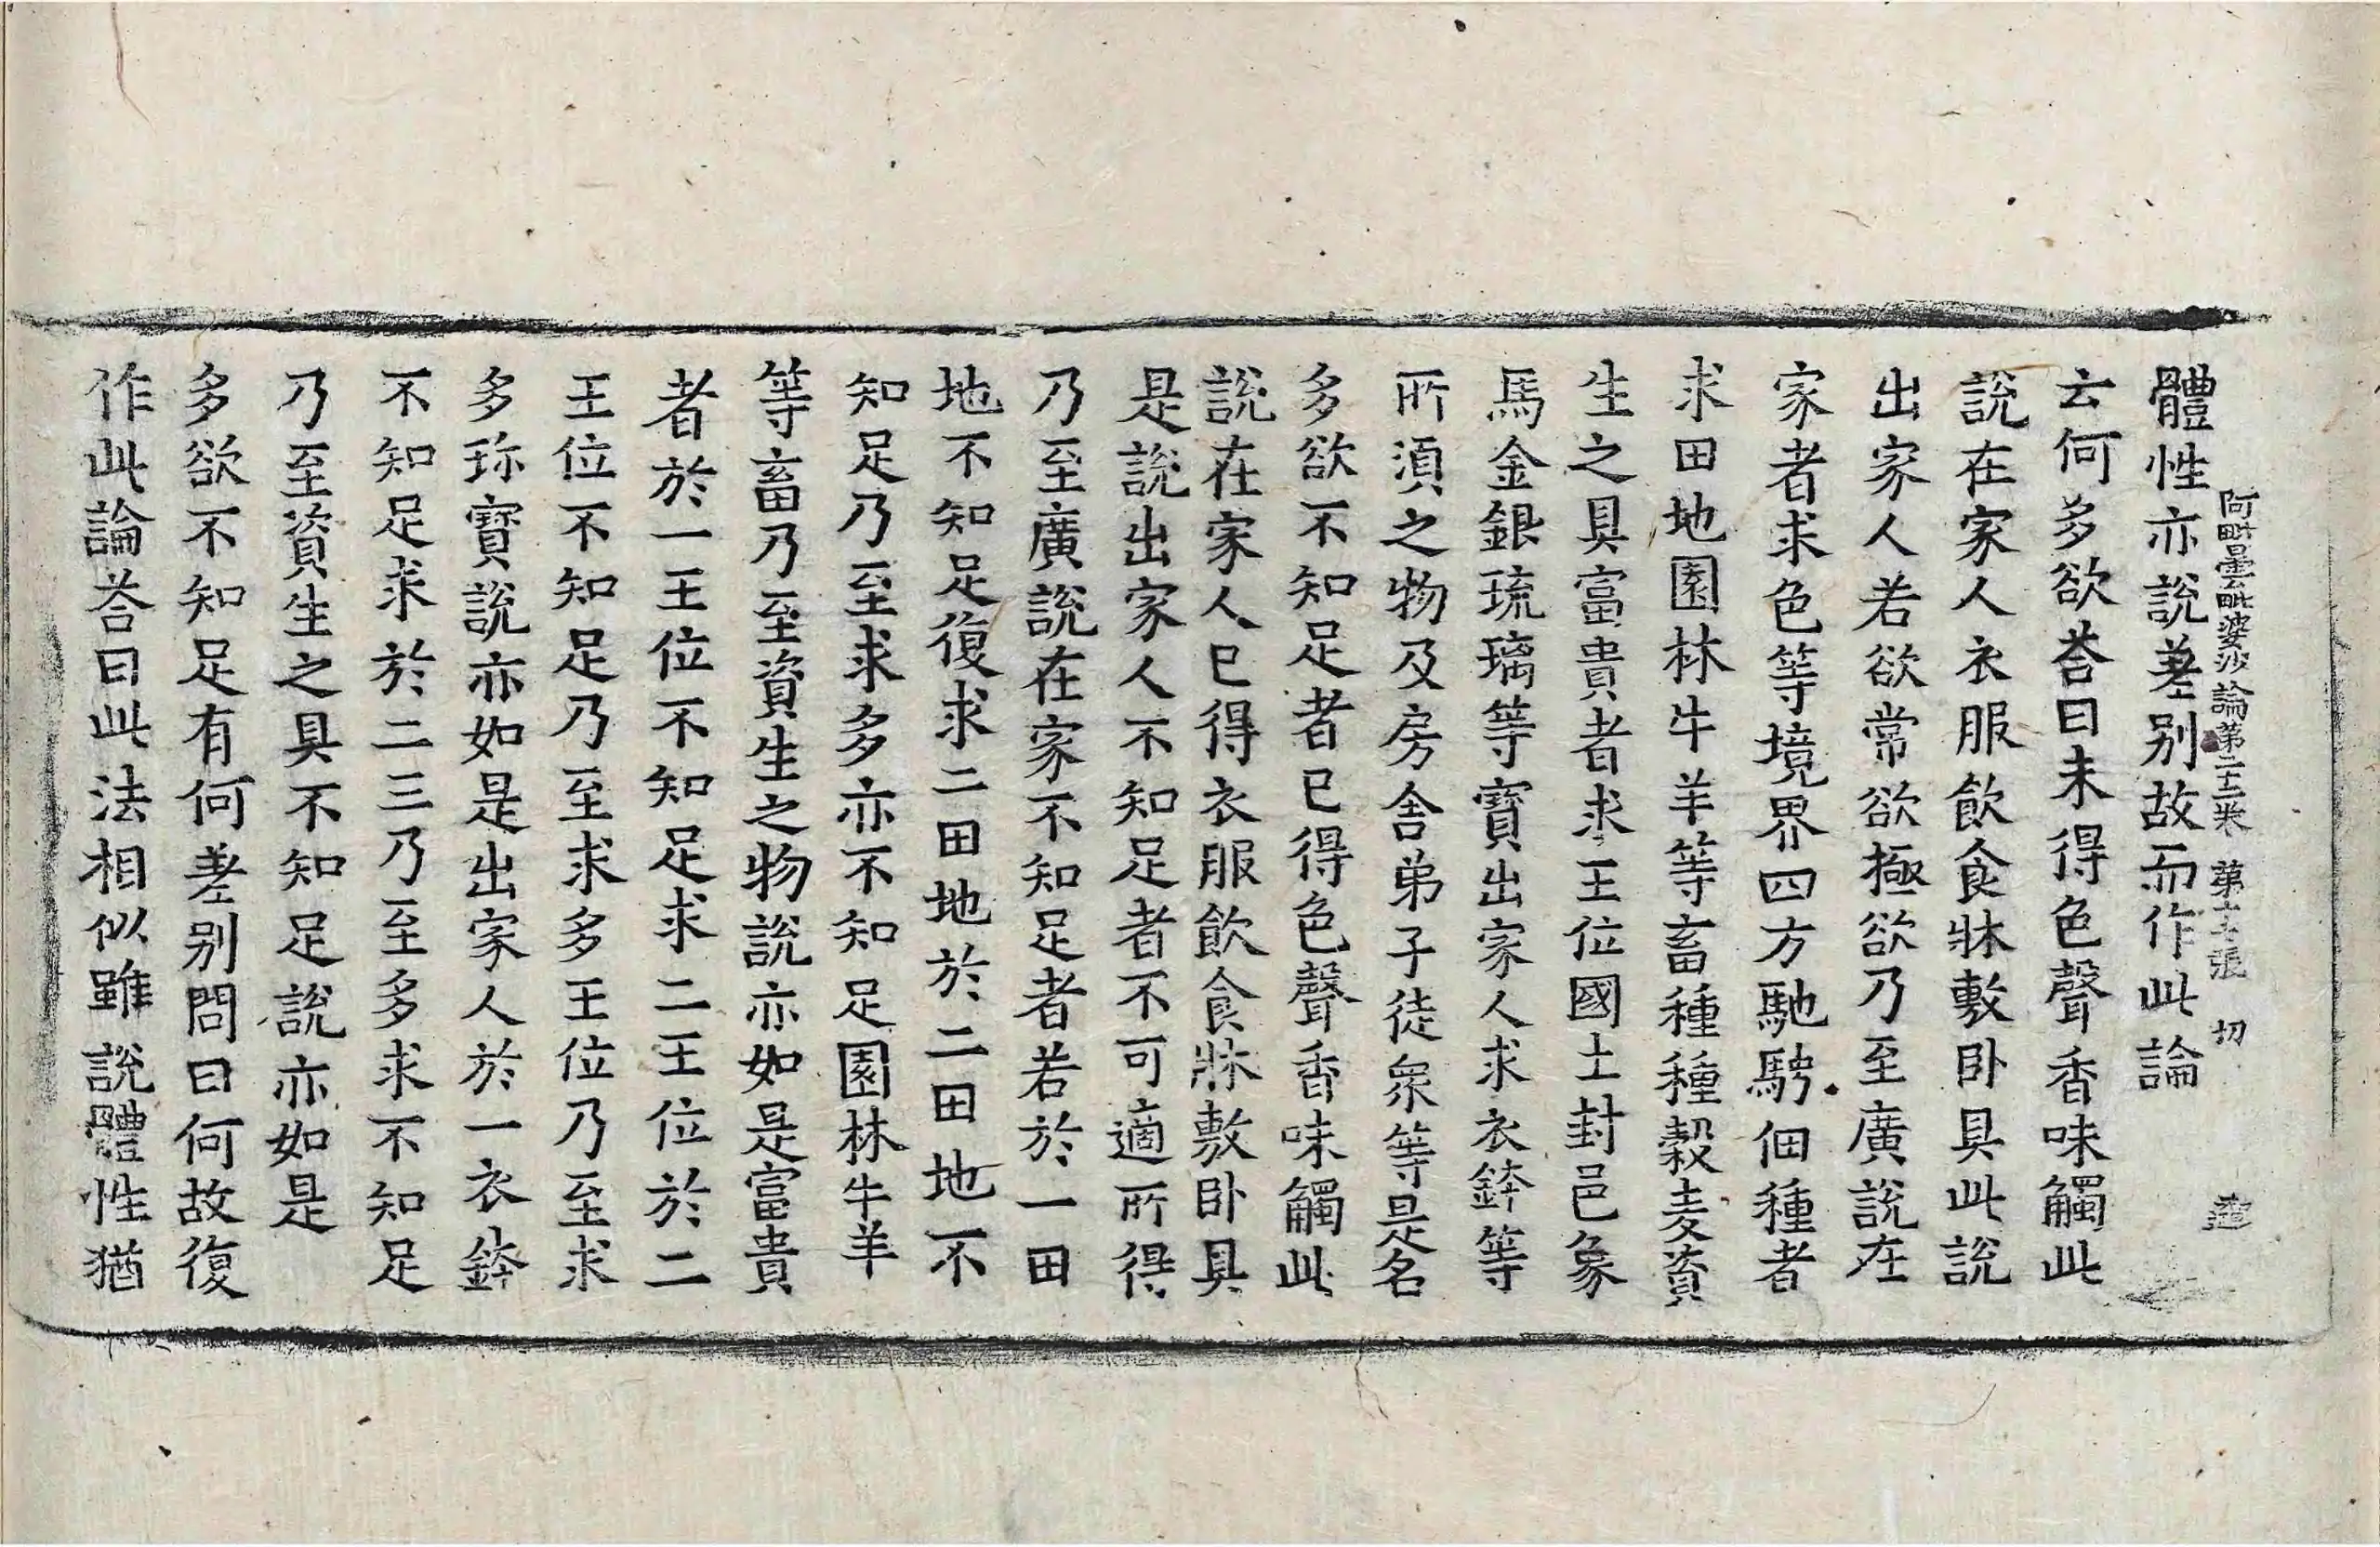 體性亦說差别故而作此論
阿毗曇毗婆沙論第二十三卷 第十二張 切 造
云何多欲荅曰未得色聲香味觸此
說在家人衣服飲食牀敷卧具此說
出家人若欲常欲極欲乃至廣說在
家者求色等境界四方馳騁佃種者
求田地園林牛羊等畜種種穀麦資
生之具富貴者求王位國土封邑象
馬金銀琉璃等寶出家人求衣鉢等
所湏之物及房舍弟子徒衆等是名
多欲不知足者已得色聲香味觸此
說在家人已得衣服飲食牀敷卧具
是說出家人不知足者不可適所得
乃至廣說在家不知足者若於一田
地不知足復求二田地於二田地不
知足乃至求多亦不知足園林牛羊
等畜乃至資生之物說亦如是富貴
者於一王位不知足求二王位於二
王位不知足乃至求多王位乃至求
多珎寶說亦如是出家人於一衣鉢
不知足求於二三乃至多求不知足
乃至資生之具不知足說亦如是
多欲不知足有何差别問曰何故復
作此論荅曰此法相似雖說體性猶